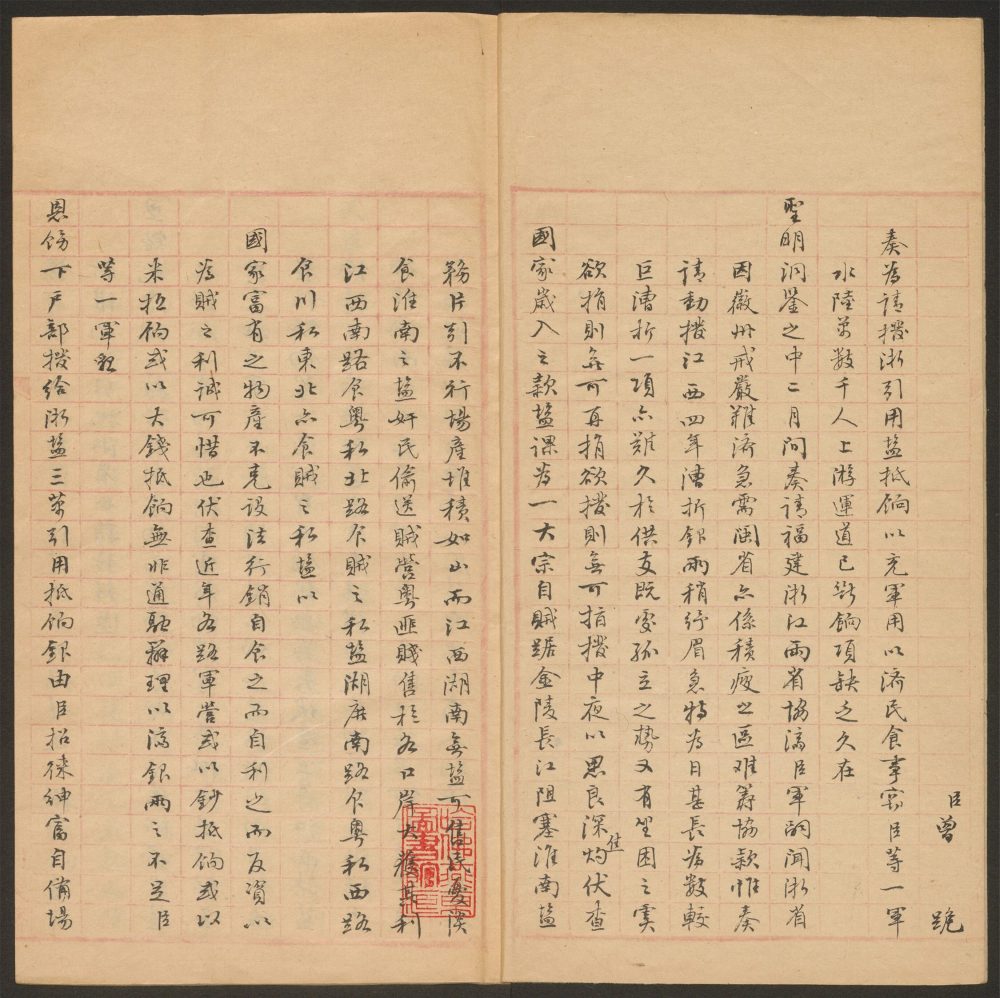 臣曾 跪
奏為請撥浙引用鹽抵餉以充軍用以濟民食事竊臣等一軍
水陸萬數千人上游運道已斷餉項缺乏久在
聖明洞鑒之中二月間奏請福建浙江兩省協濟臣軍嗣聞浙省
因徽州戒嚴難濟急需閩省亦係積疲之區难籌協款惟奏
請動撥江西四年漕折銀兩稍紓眉急特為日甚長為數較
巨漕折一項亦難久於供支既處孤立之勢又有坐困之虞
欲捐則無可再捐欲撥則無可指撥中夜以思良深焦灼伏查
國家歲入之款鹽課為一大宗自賊踞金陵長江阻塞淮南鹽
務片引不行場產堆積如山而江西湖南無鹽可售民憂淡
食淮南之鹽奸民偷送賊營粵匪賤售於各口岸大獲其利
江西南路食粵私北路食賊之私鹽湖廣南路食粵私西路
食川私東北亦食賊之私鹽以
國家富有之物產不克設法行銷自食之而自利之而反資以
為賊之利誠可惜也伏查近年各路軍營或以鈔抵餉或以
米抵餉或以大錢抵餉無非通融辦理以濟銀兩之不足臣
等一軍
恩飭下戶部撥給浙鹽三萬引用抵餉銀由臣招徠紳富自備場